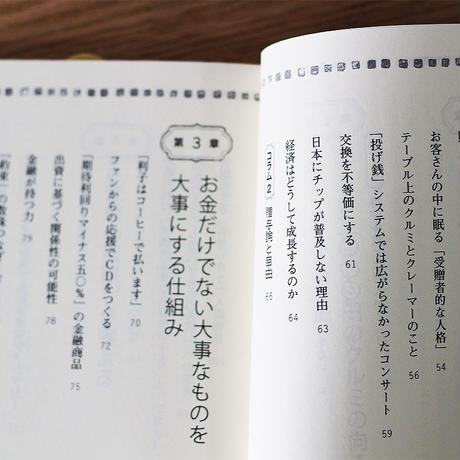 お客さんの中に眠る「受贈者的な人格」 54
テーブル上のクルミとクレーマーのこと 56
「投げ銭」システムでは広がらなかったコンサート 59
交換を不等価にする 61
日本にチップが普及しない理由 63
経済はどうして成長するのか 64
コラム2 66
第3章
お金だけでない大事なものを
大事にする仕組み
「利子はコーヒーで払います」 70
ファンからの応援でCDをつくる 72
「期待利回りマイナス五〇%」の金融商品 75
出資に基づく関係性の可能性 78
金融が持つ力 79